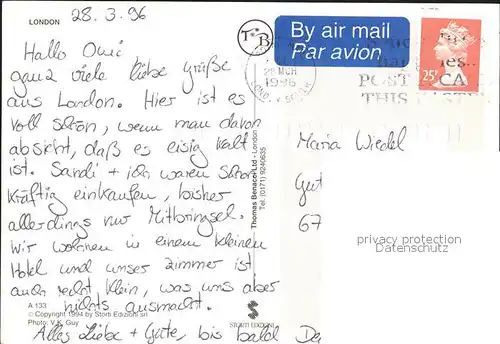 LONDON
28.3.96
T B
By air mail
Par avion
28 MCH
1996
POST CA
THIS
25P
Hallo Omi
ganz viele liebe Grüße
aus London. Hier ist es
voll schön, wenn man davon
absieht, daß es eisig kalt
ist. Sandi + ich waren schon
kräftig einkaufen, bisher
allerdings nur Mitbringsel.
Wir wohnen in einem kleinen
Hotel und unser Zimmer ist
auch recht klein, was uns aber
nichts ausmacht.
Alles Liebe + Gute, bis bald
Thomas Benacci Ltd - London
Tel. (0171) 9240635
Maria Wiedel
Gut
67
privacy protection
Datenschutz
A 133
© Copyright 1994 by Storti Edizioni srl
Photo: V.K. Guy
STORTI EDIZIONI